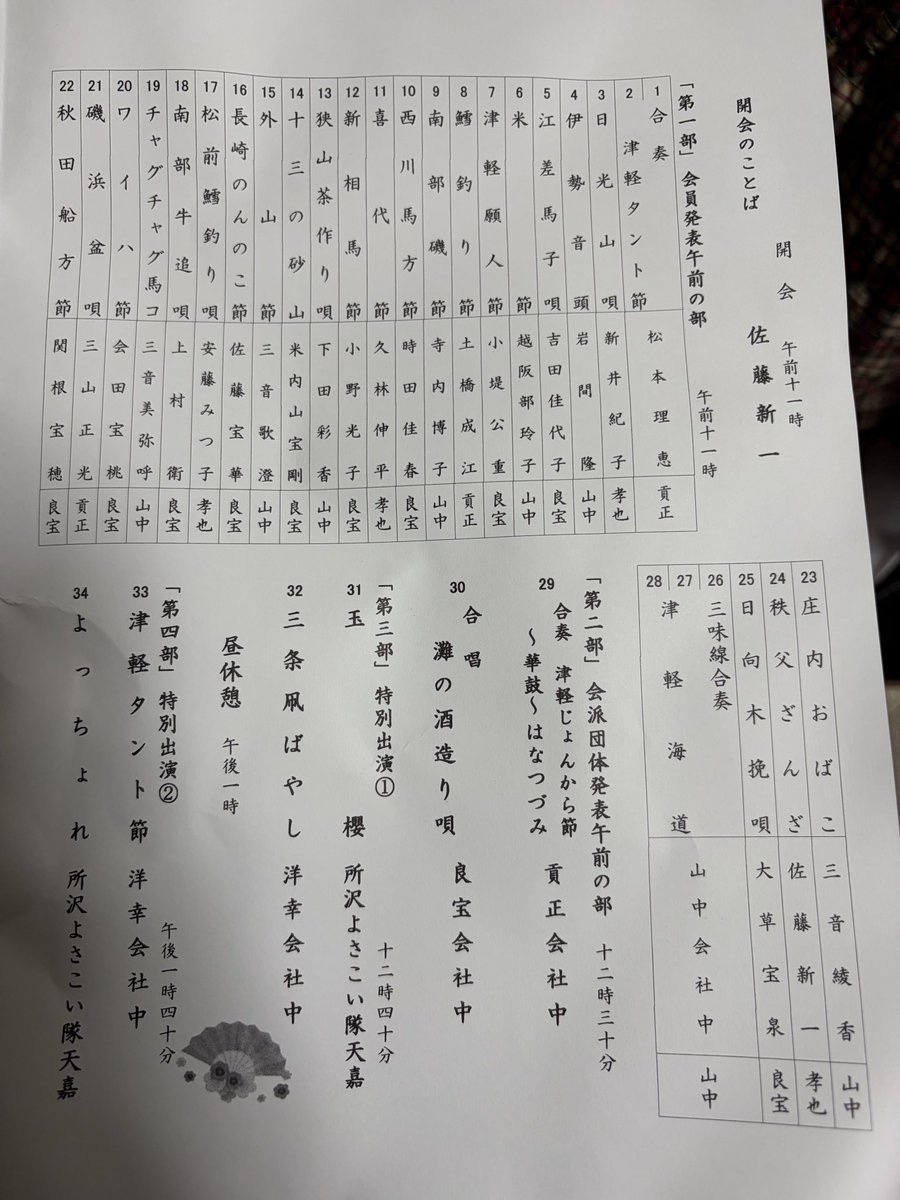 開会 午前十一時
開会のことば 佐藤新一
「第一部」会員発表午前の部 午前十一時
1 合奏
2 津軽タント節 松本理恵 貢正
3 日光山唄 新井紀子 孝也
4 伊勢音頭 岩間隆 山中
5 江差馬子唄 吉田佳代子 良宝
6 米節 越阪部玲子 山中
7 津軽願人節 小堤公重 良宝
8 鱈釣り節 土橋成江 貢正
9 南部磯節 寺内博子 山中
10 西川馬方節 時田佳春 良宝
11 喜代節 久林伸平 孝也
12 新相馬節 小野光子 良宝
13 狭山茶作り唄 下田彩香 山中
14 十三の砂山 米内山宝剛 良宝
15 外山節 三音歌澄 山中
16 長崎のんのこ節 佐藤宝華 良宝
17 松前鱈釣り唄 安藤みつ子 孝也
18 南部牛追唄 上村衛 良宝
19 チャグチャグ馬コ 三音美弥呼 山中
20 ワイハ節 会田宝桃 良宝
21 磯浜盆唄 三山正光 貢正
22 秋田船方節 関根宝穂 良宝
23 庄内おばこ 三音綾香 山中
24 秩父ざんざ 佐藤新一 孝也
25 日向木挽唄 大草宝泉 良宝
26 三味線合奏
27 津軽海道 山中会社中 山中
28
「第二部」会派団体発表午前の部 十二時三十分
29 合奏 津軽じょんから節 貢正会社中
〜華鼓〜はなつづみ
30 合唱
灘の酒造り唄 良宝会社中
「第三部」特別出演① 十二時四十分
31 玉櫻 所沢よさこい隊天嘉
32 三条凧ばやし 洋幸会社中
昼休憩 午後一時
「第四部」特別出演② 午後一時四十分
33 津軽タント節 洋幸会社中
34 よっちょれ 所沢よさこい隊天嘉